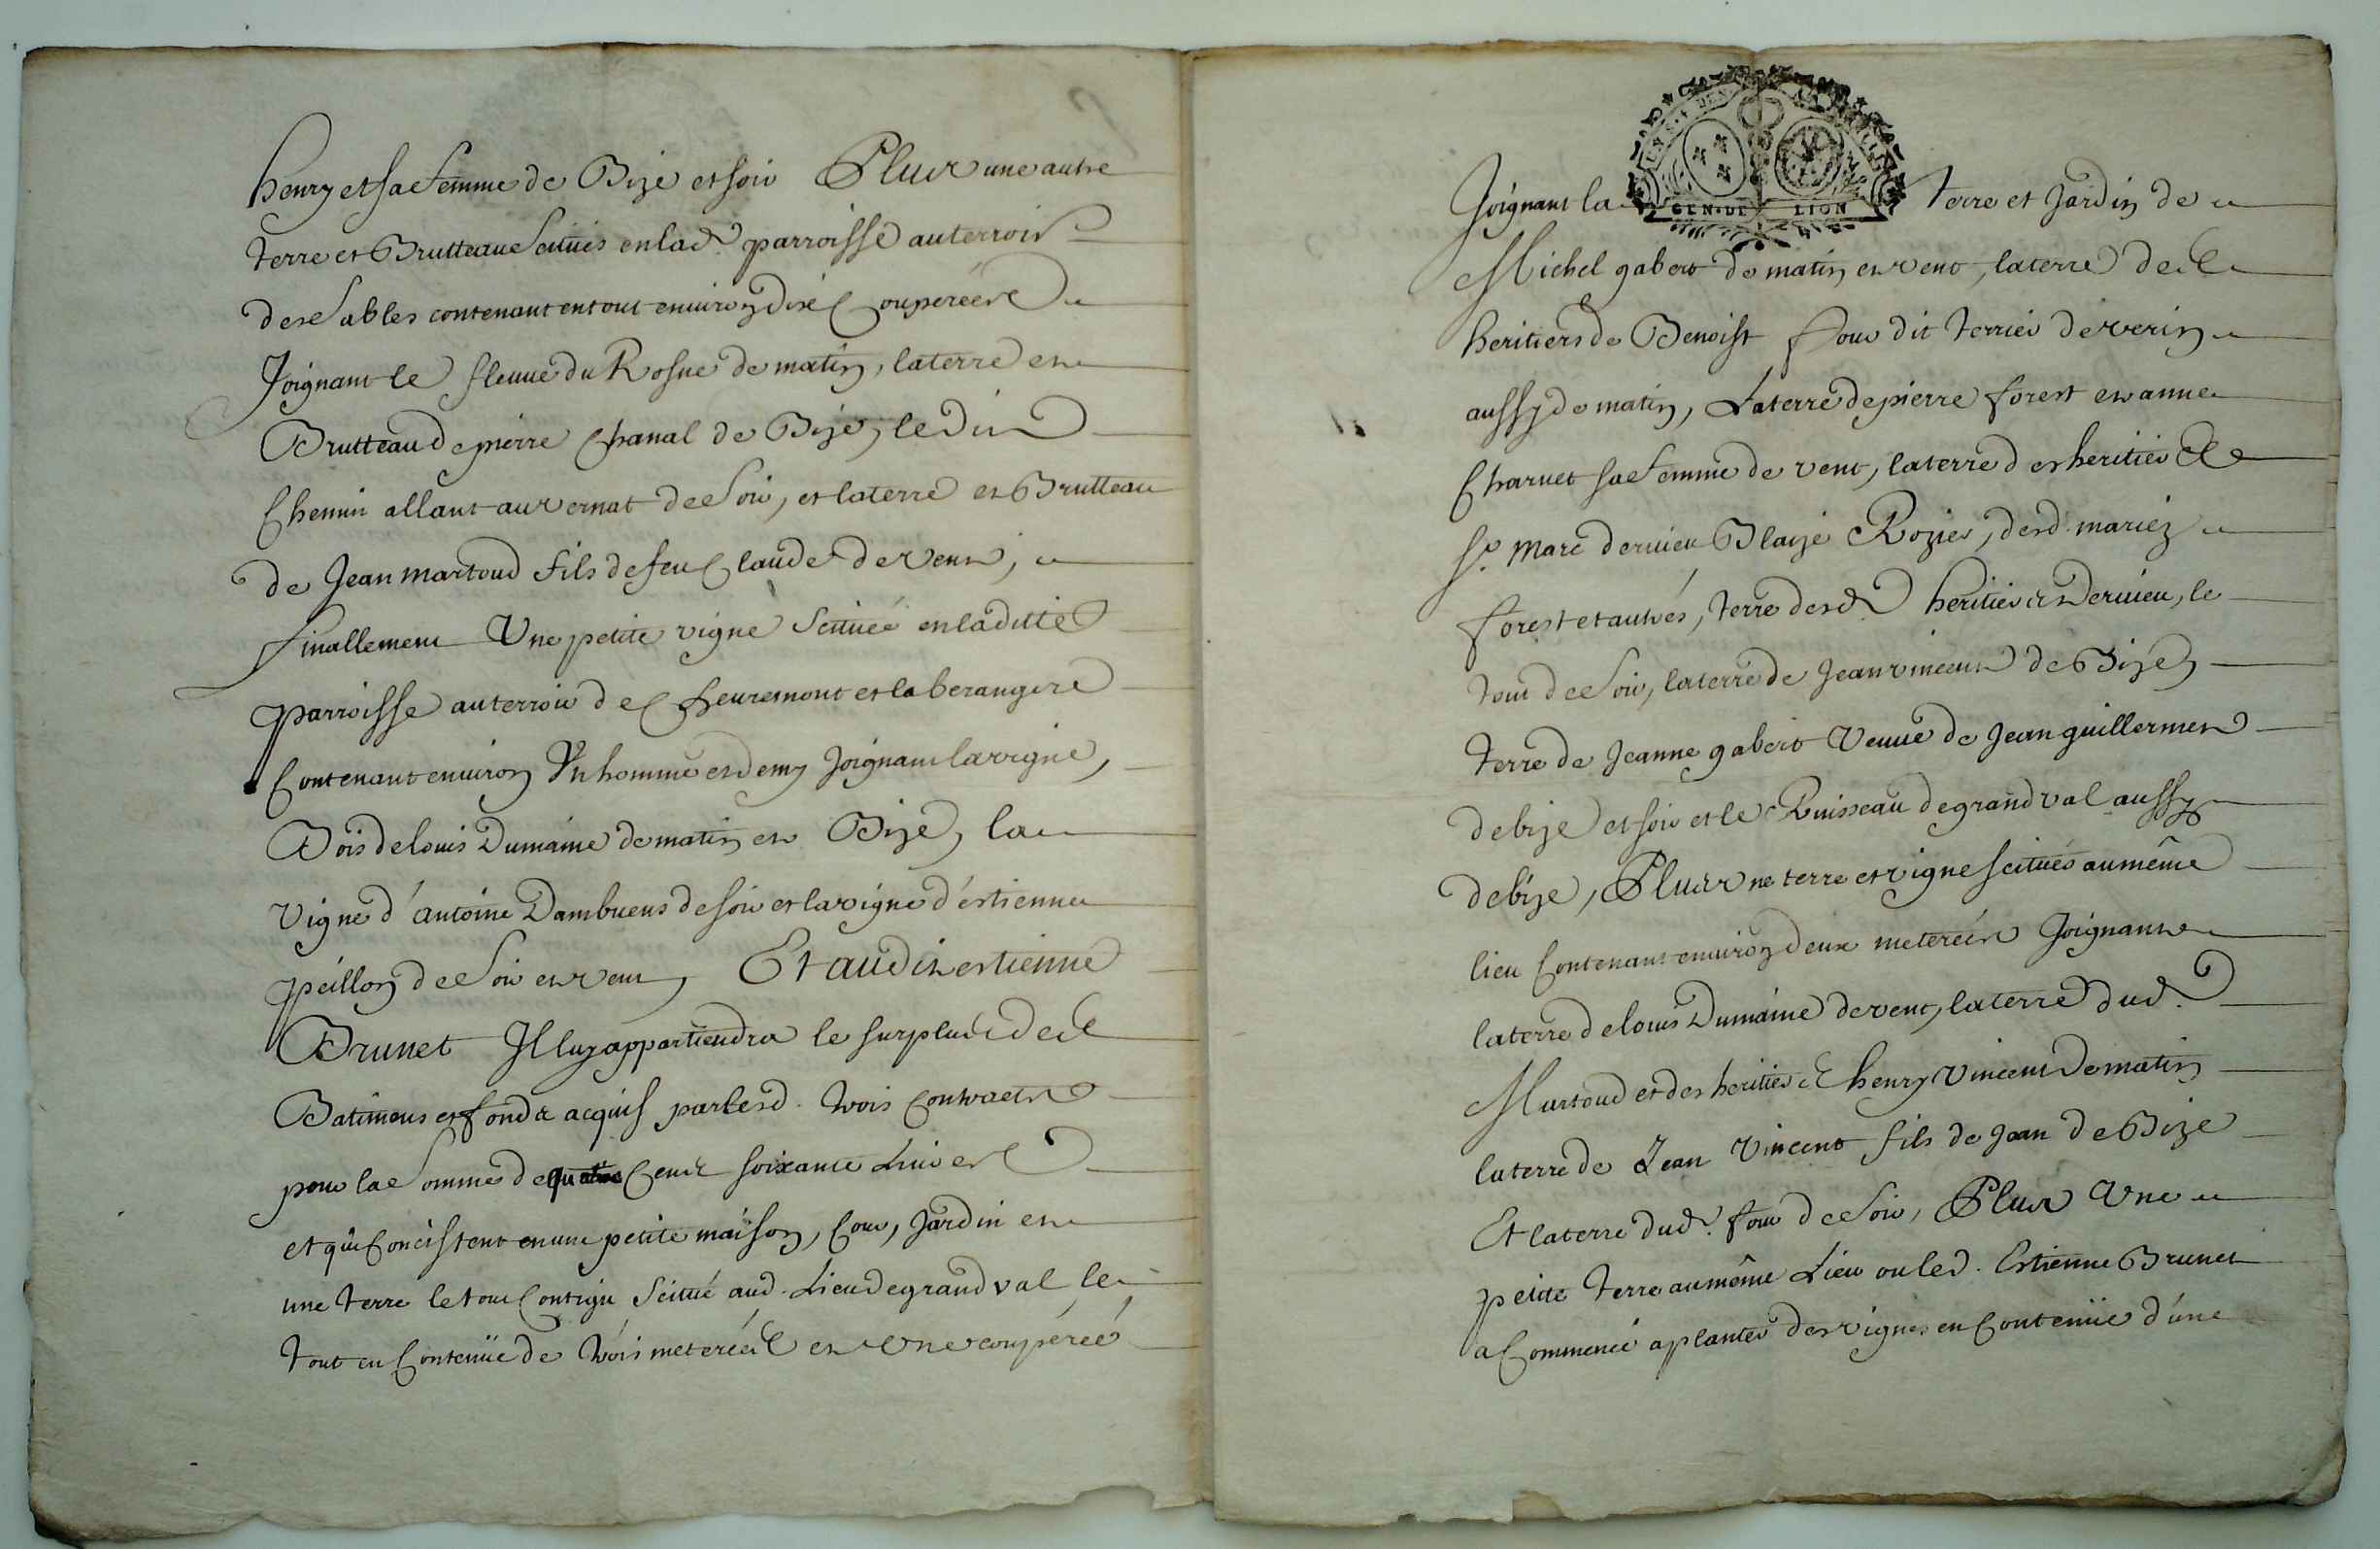 henry et sa femme de Bize et soir Plus une autre
terre et Brutteau scitués en lad. parroisse au terroir
des sables contenant en tout environ dix Couperées
Joignant le fleuve du Rosne de matin, la terre et
Brutteau de pierre Chanal de Bize, ledit
Chemin allant au vernat de soir, et la terre et Brutteau
de Jean martoud fils de feu Claude de vent,
finallement Une petite vigne scituée en laditte
parroisse au terroir de Cheuremont et la berangere
Contenant environ Un homme et demy Joignant la vigne,
Bois de louis Dumaine de matin et Bize, la
vigne d'antoine Dambuens de soir et la vigne d'estienne
peillon de soir et vent, Et audit estienne
Brunet Il luy appartiendra le surplus des
Batimens et fonds acquis par lesd. trois contracts
pour la somme de Cent soixante Livres
et qui Concistent en une petite maison, Cour, Jardin et
une terre le tout Contigu scitué aud. Lieu de grand val le
tout en Contenüe de trois meterées et une couperée
Joignant la terre et Jardin de
GEN. DE LION
Michel gabert de matin et vent, la terre des
heritiers de Benoist four dit terrier de verin
aussy de matin, La terre de pierre forest et anne
Charvet sa femme de vent, la terre des heritiers de
Sr. Marc dervieu Blaize Rozier, desd. mariez
forest et autres, terre desd. heritiers Dervieu, le
tout de soir, la terre de Jean vincent de Bize,
terre de Jeanne gabert Veuve de Jean guillermet
de bize et soir et le Ruisseau de grand val aussy
de bize, Plus une terre et vigne scitués au même
lieu Contenant environ deux meterées Joignant
la terre de louis Dumaine de vent, la terre dud.
Martoud et des heritiers henry vincent de matin
la terre de Jean Vincent fils de Jean de Bize
Et la terre dud. four de soir, Plus Une
petite terre au même Lieu ou led. Estienne Brunet
a Commencé a planter des vignes en Contenüe d'une